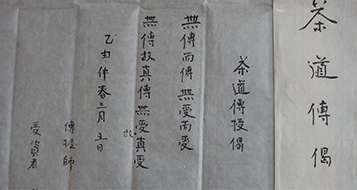 茶道傳偈
茶道傳授偈
無傳而傳無受而受
無傳故真傳無受故真受
乙酉仲春三月五日
傳授師
受資者